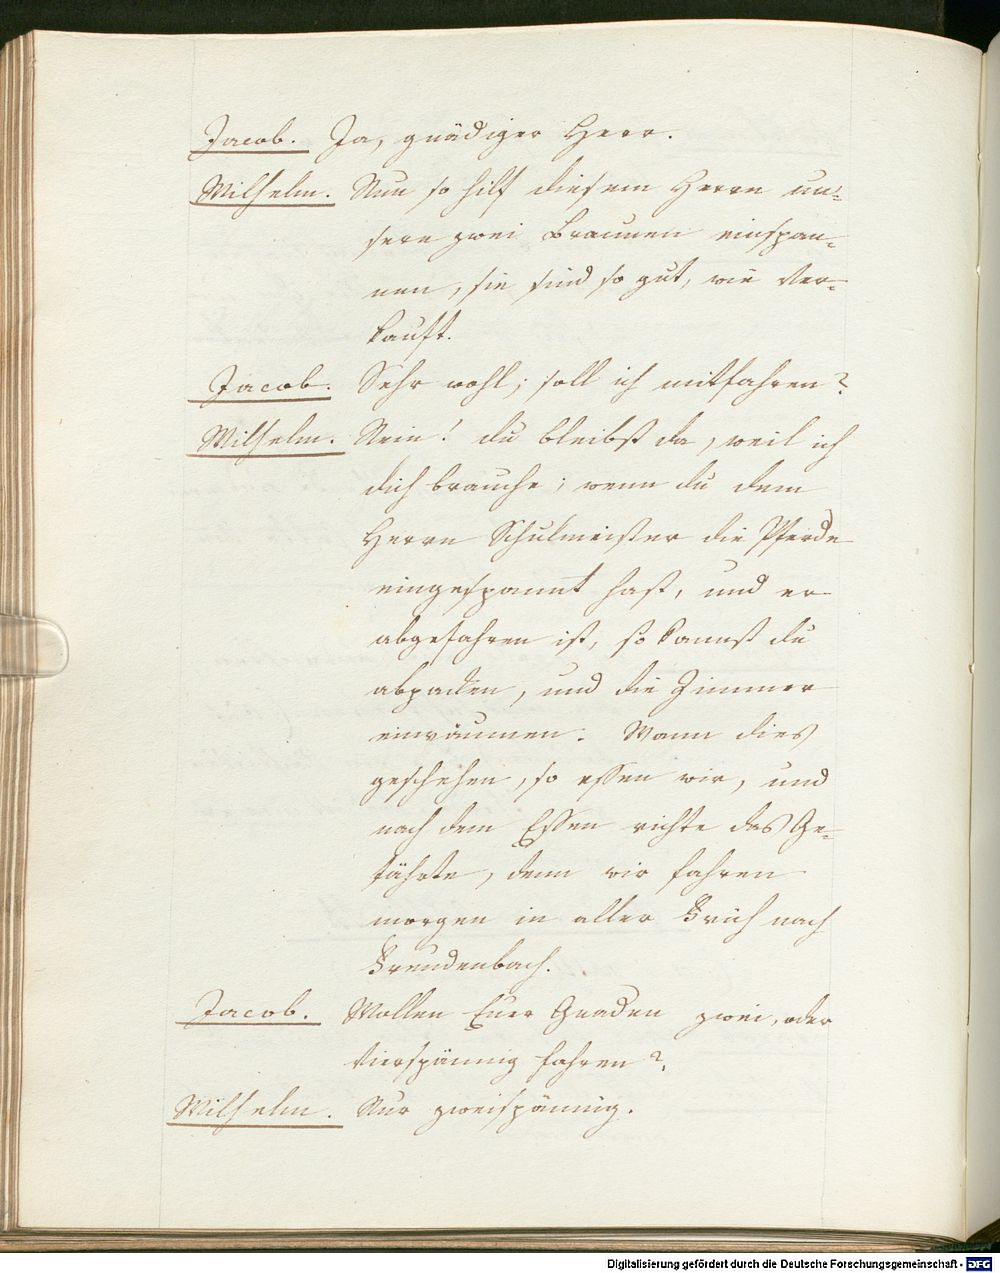 Jacob. Ja, gnädiger Herr.
Wilhelm. Nun so hilf diesem Herrn un-
sere zwei Braunen einspan-
nen, sie sind so gut, wie ver-
kauft.
Jacob. Sehr wohl; soll ich mitfahren?
Wilhelm. Nein! du bleibst da, weil ich
dich brauche; wenn du dem
Herrn Schulmeister die Pferde
eingespannt hast, und er
abgefahren ist, so kannst du
abpacken, und die Zimmer
einräumen. Wann dies
geschehen, so essen wir, und
nach dem Essen richte das Ge-
fährte, denn wir fahren
morgen in aller Früh nach
Freudenbach.
Jacob. Wollen Euer Gnaden zwei, oder
vierspännig fahren?
Wilhelm. Nur zweispännig.
Digitalisierung gefördert durch die Deutsche Forschungsgemeinschaft - DFG